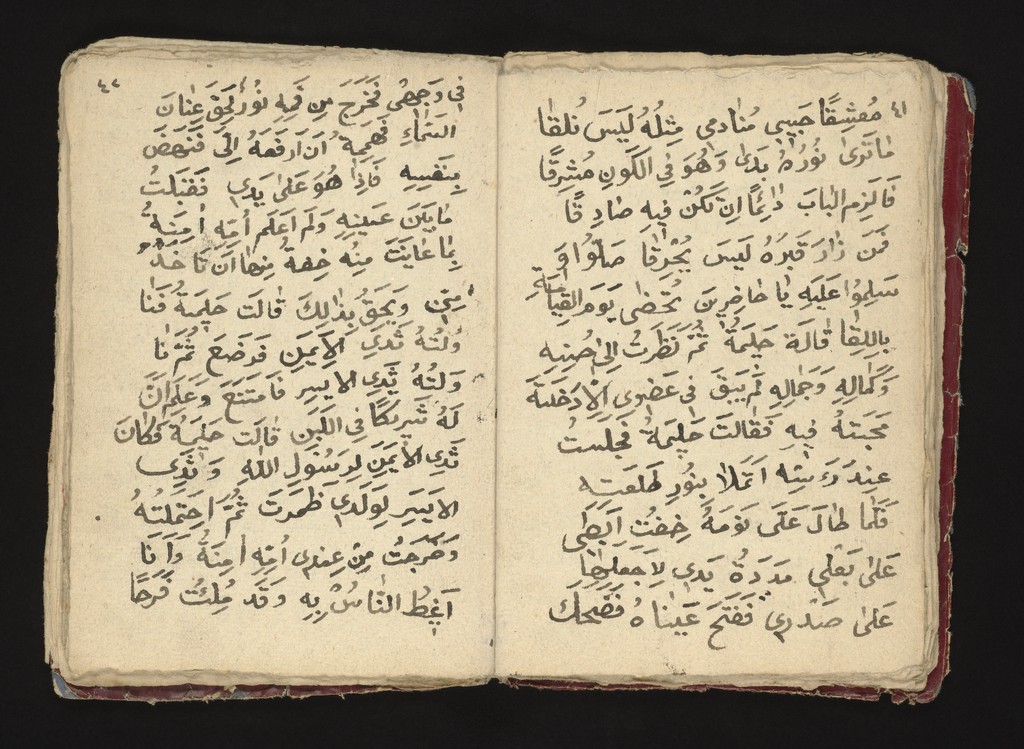 ٤١
مُعشِقًا حَبِيبي مُنادمي مِثلُهُ لَيسَ نُلقاٰ
ماٰتَرىٰ نُورُهُ بَدَىٰ وَهُوَ فِي الكَونِ مُشرِقًا
فَالزِم البٰابَ دٰائِمًا اِن تَكُن فِيهِ صٰادِ قًا
فَمَن زٰارَ قَبرَهُ لَيسَ يُحْرَقاٰ صَلّوُا وَ
سَلِّمِوُا عَلَيهِ يٰا حٰاضِرِينَ تُحضٰى يَومَ القِيٰامَةِ
بِاللِقٰا قٰالَة حَلِيمَةُ ثُمَّ نَظَرتُ اِلىٰ حُسنِهِ
وَكَمٰالِهِ وَجَمٰالِهِ فَلَم يَبقَ فى عَضوى اِلّا دَخَلتَهُ
مَحَبَتهُ فِيهِ فَقٰالَت حَلِيمَةُ فجَلستُ
عِندَ رَءسِه اَتَمَلا بِنُورِ طَلعَتِه
فَلَمّا طاٰلَ عَلَى نَومَهُ خِفتُ اَبطى
عَلىٰ بَعلي مدَدةُ يَدي لِاَجعَلهاٰ
عَلىٰ صَدري فَفَتَحَ عَينٰاهُ فضَحِكَ
٤٢
فى وَجهِى فَخَرَجَ مِن فَمِهِ نُورٌ لَحِقَ عِناٰنَ
السَمٰاءِ فَهَمَمة اَن اَرفَعَهُ اِلَىَّ فَنَهَضَ
بِنَفسِهِ فَاِذٰا هُوَ عَلىٰ يَدي فَقَبَلتُ
مٰا بَينَ عَينَيهِ وَلَم اَعلَم اُمِّهِ اٰمِنَةُ
بِمٰا عٰايَنتُ مِنهُ خِفةُ مِنهٰا اَن تَاخذُهُ
مِنّى وَيَحِقُ بِذٰلِكَ قٰالَت حَلِيمَةُ فَنٰا
وَلتُهُ ثَدي الاَيمَنِ فَوَضَعَ ثُمَّ نٰا
وَلتُهُ ثَدِي الايسِر فَامتَنَعَ وَعَلِمَ اَنَّ
لَهُ شَرِيكًا فى اللَبَنِ قٰالَت حَلِيمَةُ فَكٰانَ
ثَدي الاَيمَنِ لِرَسُولِ اللّٰهِ وَ ثَدِي
الايَسَرِ لِوَلَدي ظَمرَتَ ثُمَّ احتَمَلتُهُ
وَخَرَجتُ مِن عِندى اُمِّهِ اٰمِنَةُ وَاَنٰا
اَغبِطُ النٰاسُ بِهِ وَقَد مُلِئتُ فَرَحًا